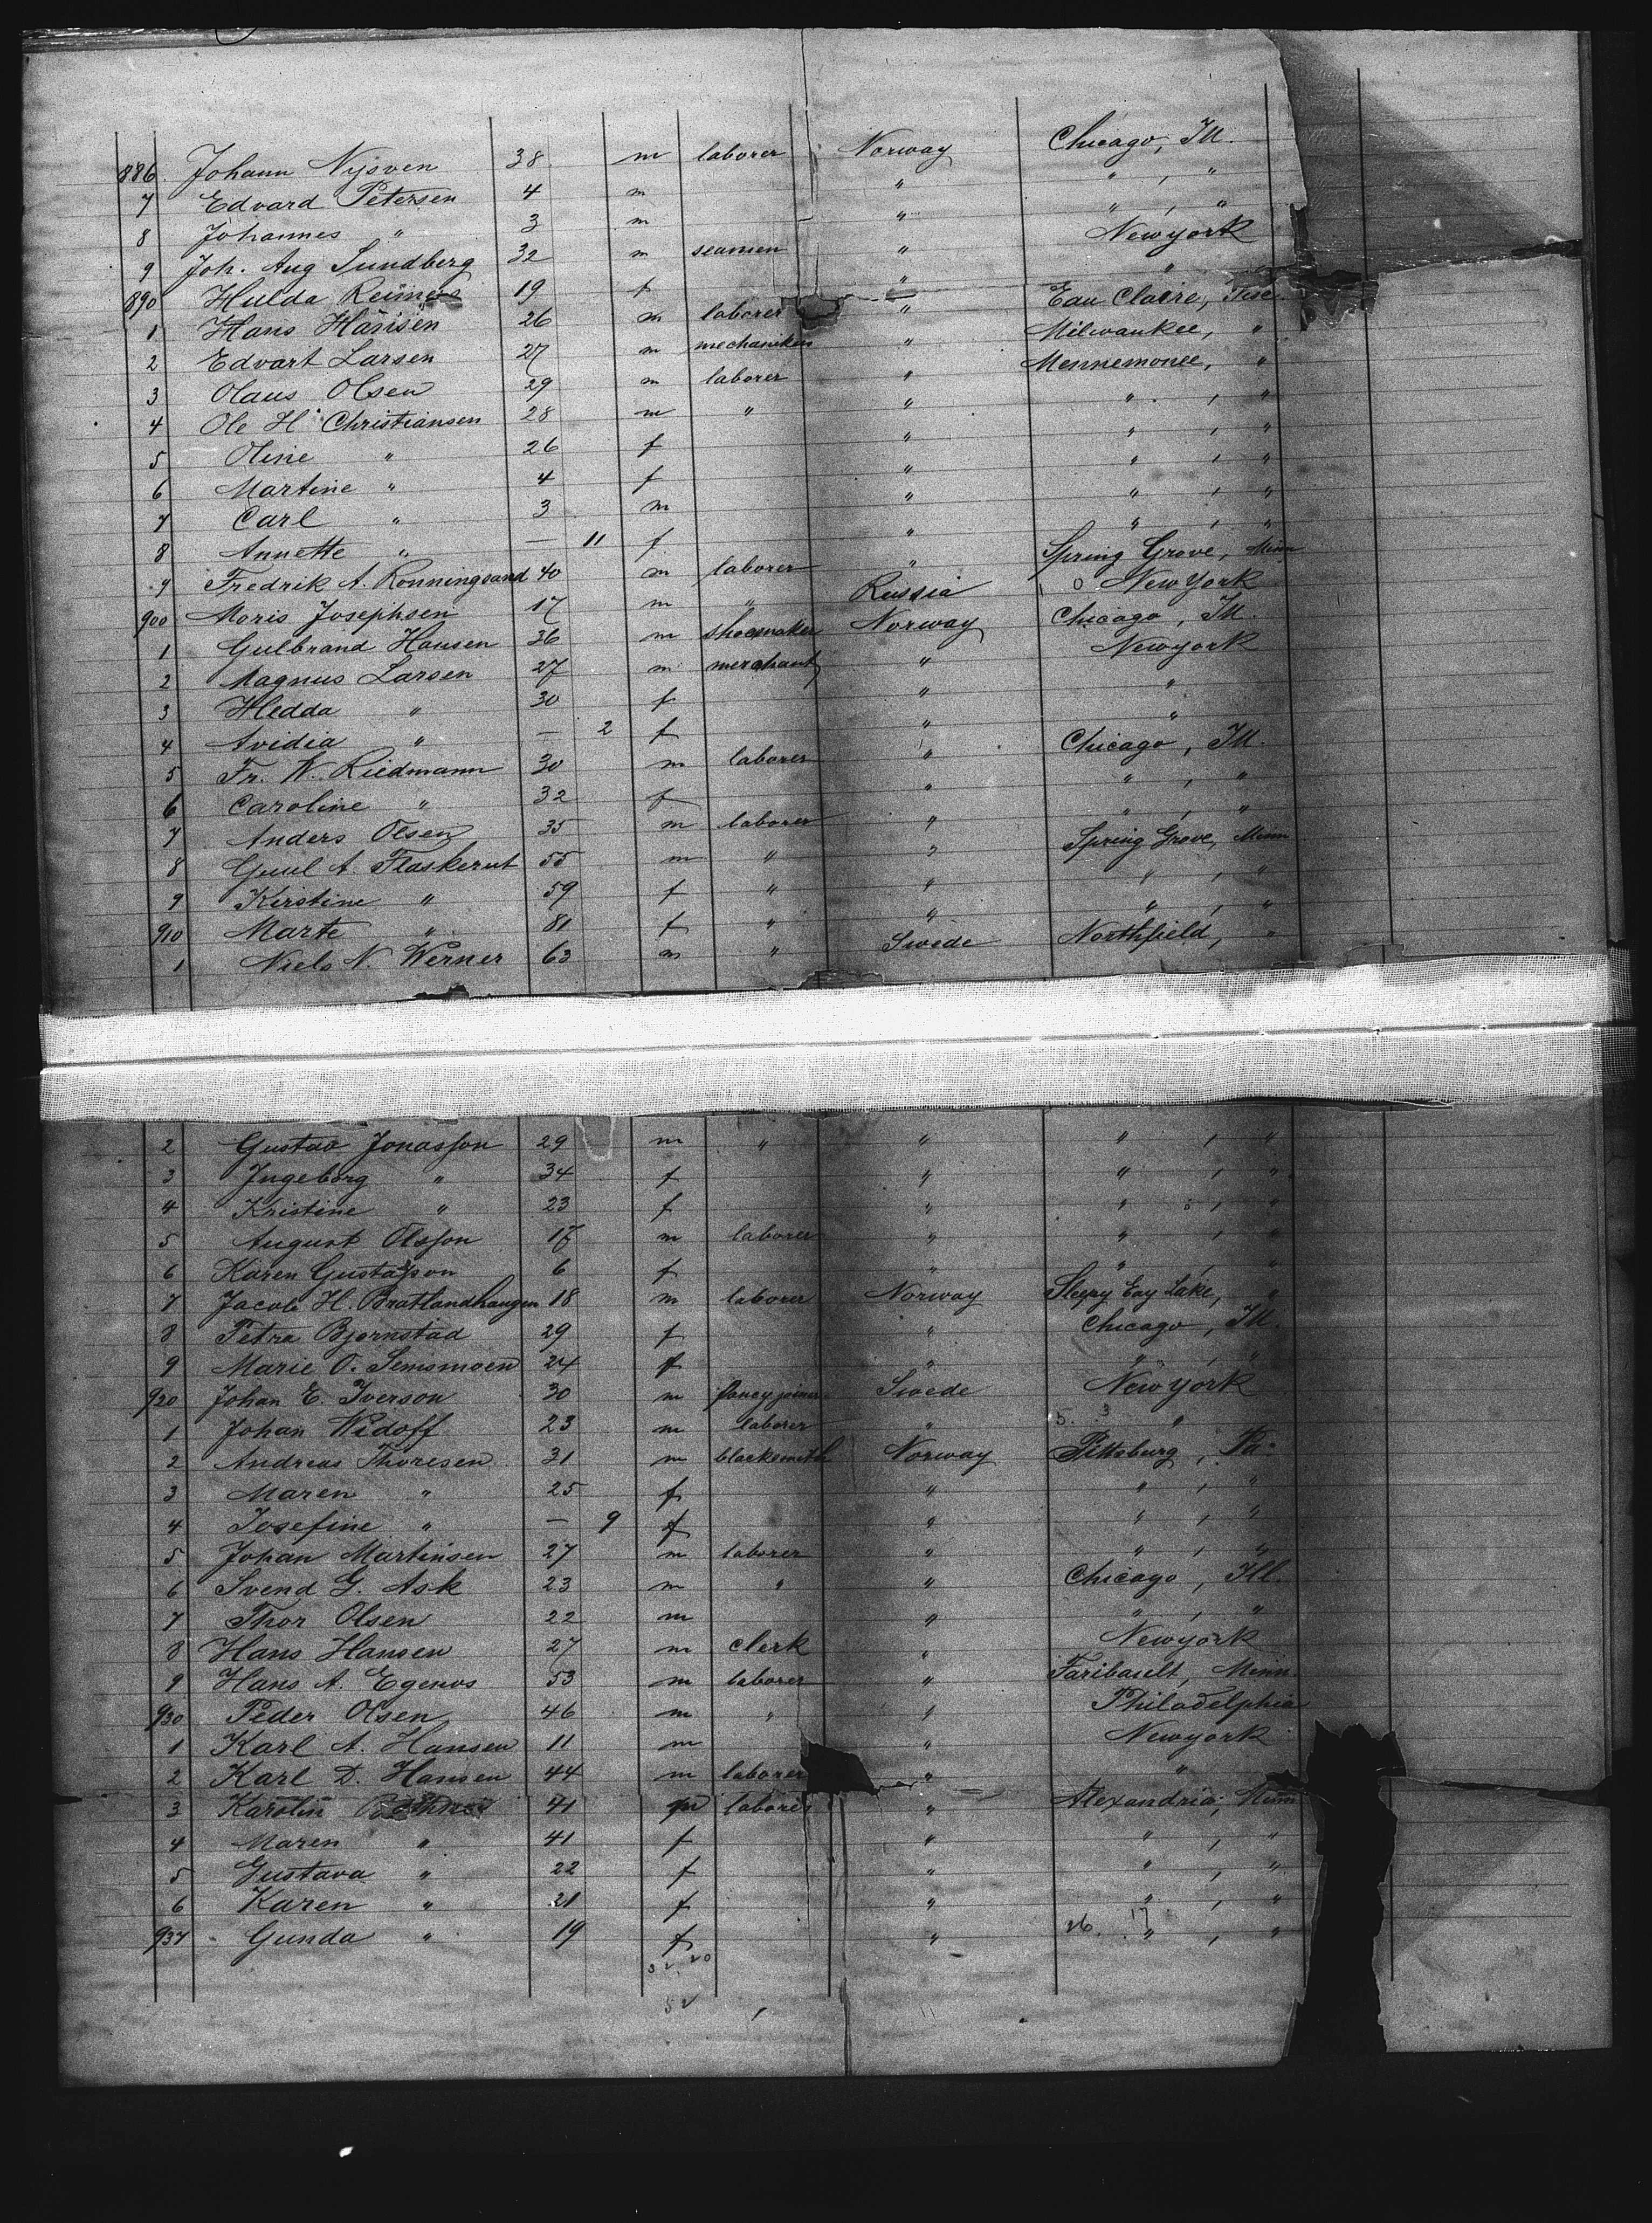 886 Johann Nysven 38 m laborer Norway Chicago, Ill.
7 Edvard Petersen 4 m " " , "
8 Johannes " 3 m " " , "
9 Joh. Aug Sundberg 32 m seamen " New york
890 Hulda Reimers 19 f " "
1 Hans Hansen 26 m laborer " Eau Claire, Wisc.
2 Edvart Larsen 27 m mechaniker " Milwaukee, "
3 Olaus Olsen 29 m laborer " Mennemonee, "
4 Ole H. Christiansen 28 m " " " , "
5 Oline " 26 f " " , "
6 Martine " 4 f " " , "
7 Carl " 3 m " " , "
8 Annette " — 11 f " " , "
9 Fredrik A. Ronningsand 40 m laborer " Spring Grove, Minn
900 Moris Josephsen 17 m " Russia New York
1 Gulbrand Hansen 36 m shoemaker Norway Chicago, Ill.
2 Magnus Larsen 27 m merchant " New york
3 Hedda " 30 f " "
4 Avidia " — 2 f " "
5 Fr. W. Riedmann 30 m laborer " Chicago, Ill.
6 Caroline " 32 f " " , "
7 Anders Olsen 35 m laborer " " , "
8 Guul A. Flaskerut 55 m " " Spring Grove, Minn
9 Kirstine " 59 f " " " , "
910 Marte " 81 f " " " , "
1 Niels N. Werner 63 m " Swede Northfield, "
2 Gustav Jonasson 29 m " " " , "
3 Ingeborg " 34 f " " , "
4 Kristine " 23 f " " , "
5 August Olsson 17 m laborer " " , "
6 Karen Gustafson 6 f " " , "
7 Jacob H. Bratlandhaugen 18 m laborer Norway Sleepy Eay Lake, "
8 Petra Bjornstad 29 f " Chicago, Ill.
9 Marie O. Semsmoen 24 f " " , "
920 Johan E. Iverson 30 m fancy joiner Swede New york
1 Johan Widoff 23 m laborer " "
2 Andreas Thoresen 31 m blacksmith Norway Pittsburg, Pa.
3 Maren " 25 f " " , "
4 Josefine " — 9 f " " , "
5 Johan Martinsen 27 m laborer " " , "
6 Svend G. Ask 23 m " " Chicago, Ill.
7 Thor Olsen 22 m " " , "
8 Hans Hansen 27 m clerk " New york
9 Hans A. Egenes 53 m laborer " Faribault, Minn.
930 Peder Olsen 46 m " " Philadelphia
1 Karl A. Hansen 11 m " New york
2 Karl D. Hansen 44 m laborer " "
3 Karolin 41 m laborer " Alexandria, Minn
4 Maren " 41 f " " , "
5 Gustava " 22 f " " , "
6 Karen " 21 f " " , "
937 Gunda " 19 f " 26. 17 " , "
32. 20
52